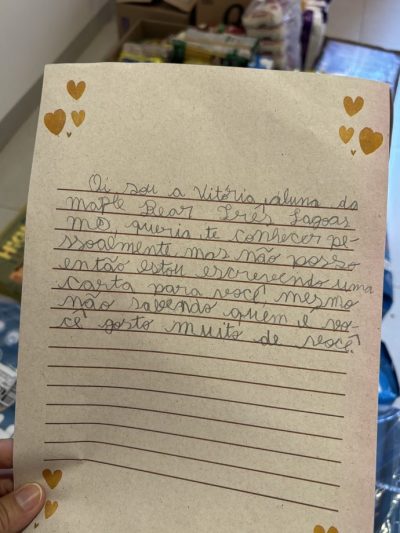 Oi sou a Vitória, aluna da
Maple Bear Três Lagoas
MS, queria te conhecer pe-
ssoalmente mas não posso
então estou escrevendo uma
carta para você, mesmo
não sabendo quem é vo-
cê gosto muito de você.